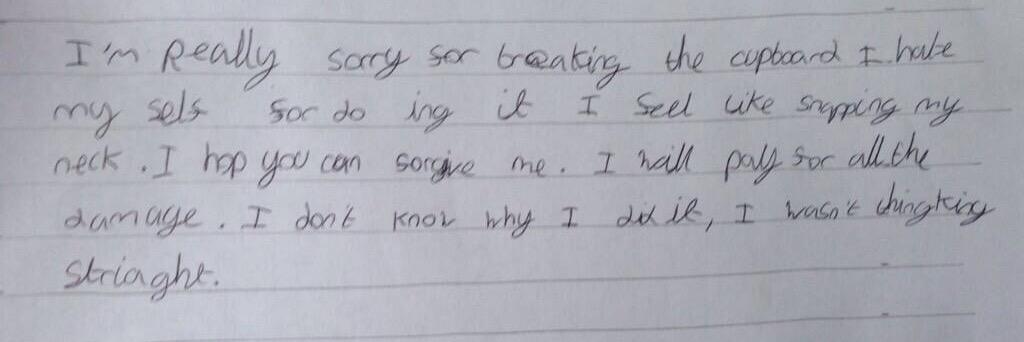 I'm Really sorry for breaking the cupboard I hate
my self for do ing it I feel like snapping my
neck. I hop you can forgive me. I will pay for all the
damage. I don't know why I did it, I wasn't thingking
striaght.